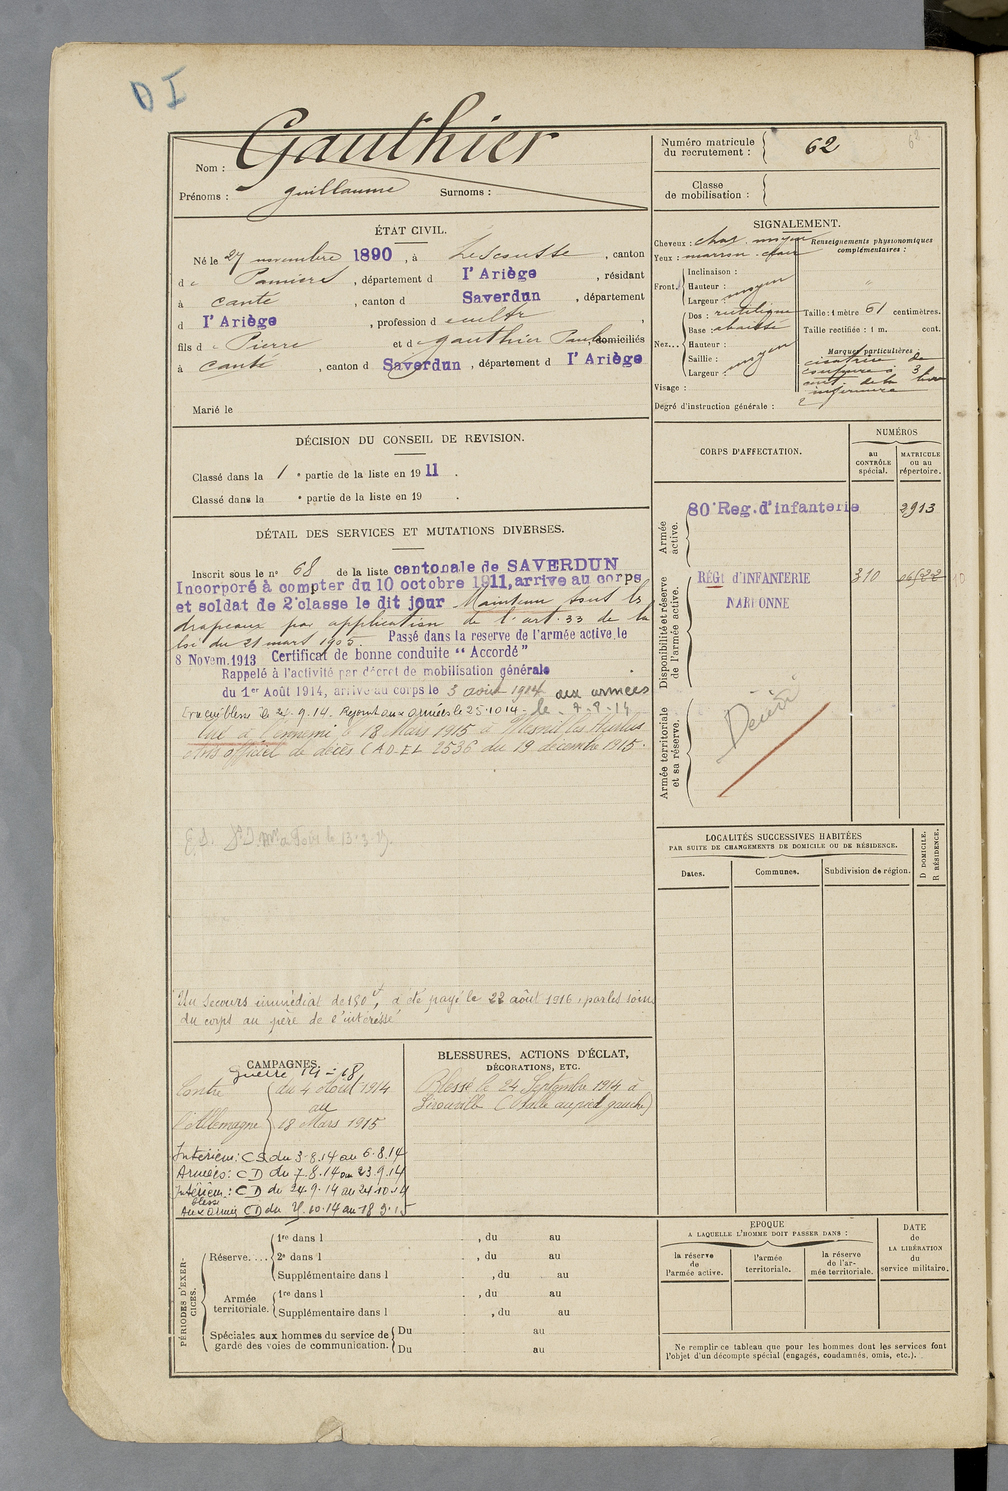 D I
Gauthier
Nom :
Prénoms : Guillaume Surnoms :
Numéro matricule
du recrutement : 62
62
Classe
de mobilisation :
ÉTAT CIVIL.
Né le 27 novembre 1890, à Lescousse, canton
d e Pamiers, département d l'Ariège, résidant
à Canté, canton d Saverdun, département
d l'Ariège, profession d cultr,
fils d e Pierre et d e Gauthier domiciliés
à Canté, canton d Saverdun, département d l'Ariège
Marié le
SIGNALEMENT.
Cheveux : chat. moyen
Yeux : marron clair
Renseignements physionomiques
complémentaires :
Front.
Inclinaison :
Hauteur : moyen
Largeur :
Nez...
Dos : rectiligne
Base : abaissée
Hauteur :
Saillie : moyen
Largeur :
Taille : 1 mètre 61 centimètres.
Taille rectifiée : 1 m. cent.
Marques particulières :
cicatrice de
coupure à 3
cent. de la lèvre
inférieure
Visage :
Degré d'instruction générale : 2
DÉCISION DU CONSEIL DE REVISION.
Classé dans la 1 e partie de la liste en 1911.
Classé dans la e partie de la liste en 19 .
DÉTAIL DES SERVICES ET MUTATIONS DIVERSES.
Inscrit sous le n° 68 de la liste cantonale de SAVERDUN
Incorporé à compter du 10 octobre 1911, arrive au corps
et soldat de 2e classe le dit jour Maintenu sous les
drapeaux par application de l'art. 33 de la
loi du 21 mars 1905. Passé dans la reserve de l'armée active, le
8 Novem. 1913 Certificat de bonne conduite "Accordé"
Rappelé à l'activité par décret de mobilisation générale
du 1er Août 1914, arrive au corps le 3 août 1914 aux armées
Evacué blessé le 24.9.14. Rejoint aux armées le 25.10.14 - le 7-8-14
Tué à l'ennemi le 18 Mars 1915 à Mesnil les Hurlus
Avis officiel de décès CAD-EL 2536 du 19 décembre 1915.
Un secours immédiat de 150f, a été payé le 22 août 1916, par les soins
du corps au père de l'intéressé
CORPS D'AFFECTATION.
NUMÉROS
au
CONTRÔLE
spécial.
MATRICULE
ou au
répertoire.
Armée
active.
80e Reg. d'infanterie 2913
Disponibilité et réserve
de l'armée active.
RÉGt d'INFANTERIE 310
NARBONNE
Armée territoriale
et sa réserve.
Décédé
LOCALITÉS SUCCESSIVES HABITÉES
PAR SUITE DE CHANGEMENTS DE DOMICILE OU DE RÉSIDENCE.
Dates.
Communes.
Subdivision de région.
D DOMICILE.
R RÉSIDENCE.
CAMPAGNES.
Guerre 14-18
Contre
l'Allemagne
du 4 Août 1914
au
18 Mars 1915
Intérieur : CS du 3-8.14 au 6-8.14
Armées : CD du 7.8.14 au 23.9.14
Intérieur : CD du 24.9.14 au 24.10.14
blessé
Aux armées CD du 25.10.14 au 18.3.15
BLESSURES, ACTIONS D'ÉCLAT,
DÉCORATIONS, ETC.
Blessé le 24 Septembre 1914 à
Lirouville (balle au pied gauche)
PÉRIODES D'EXER-
CICES.
Réserve....
1re dans l , du au
2e dans l , du au
Supplémentaire dans l , du au
Armée
territoriale.
1re dans l , du au
Supplémentaire dans l , du au
Spéciales aux hommes du service de
garde des voies de communication.
Du au
Du au
EPOQUE
A LAQUELLE L'HOMME DOIT PASSER DANS :
la réserve
de
l'armée active.
l'armée
territoriale.
la réserve
de l'ar-
mée territoriale.
DATE
de
LA LIBÉRATION
du
service militaire.
Ne remplir ce tableau que pour les hommes dont les services font
l'objet d'un décompte spécial (engagés, condamnés, omis, etc.).